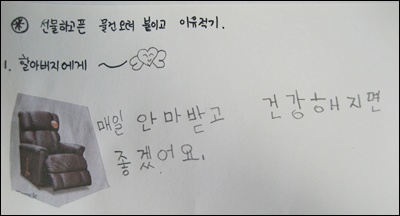 ※ 선물하고픈 물건 오려 붙이고 이유적기.
1. 할아버지에게
매일 안마받고 건강해지면
좋겠어요.